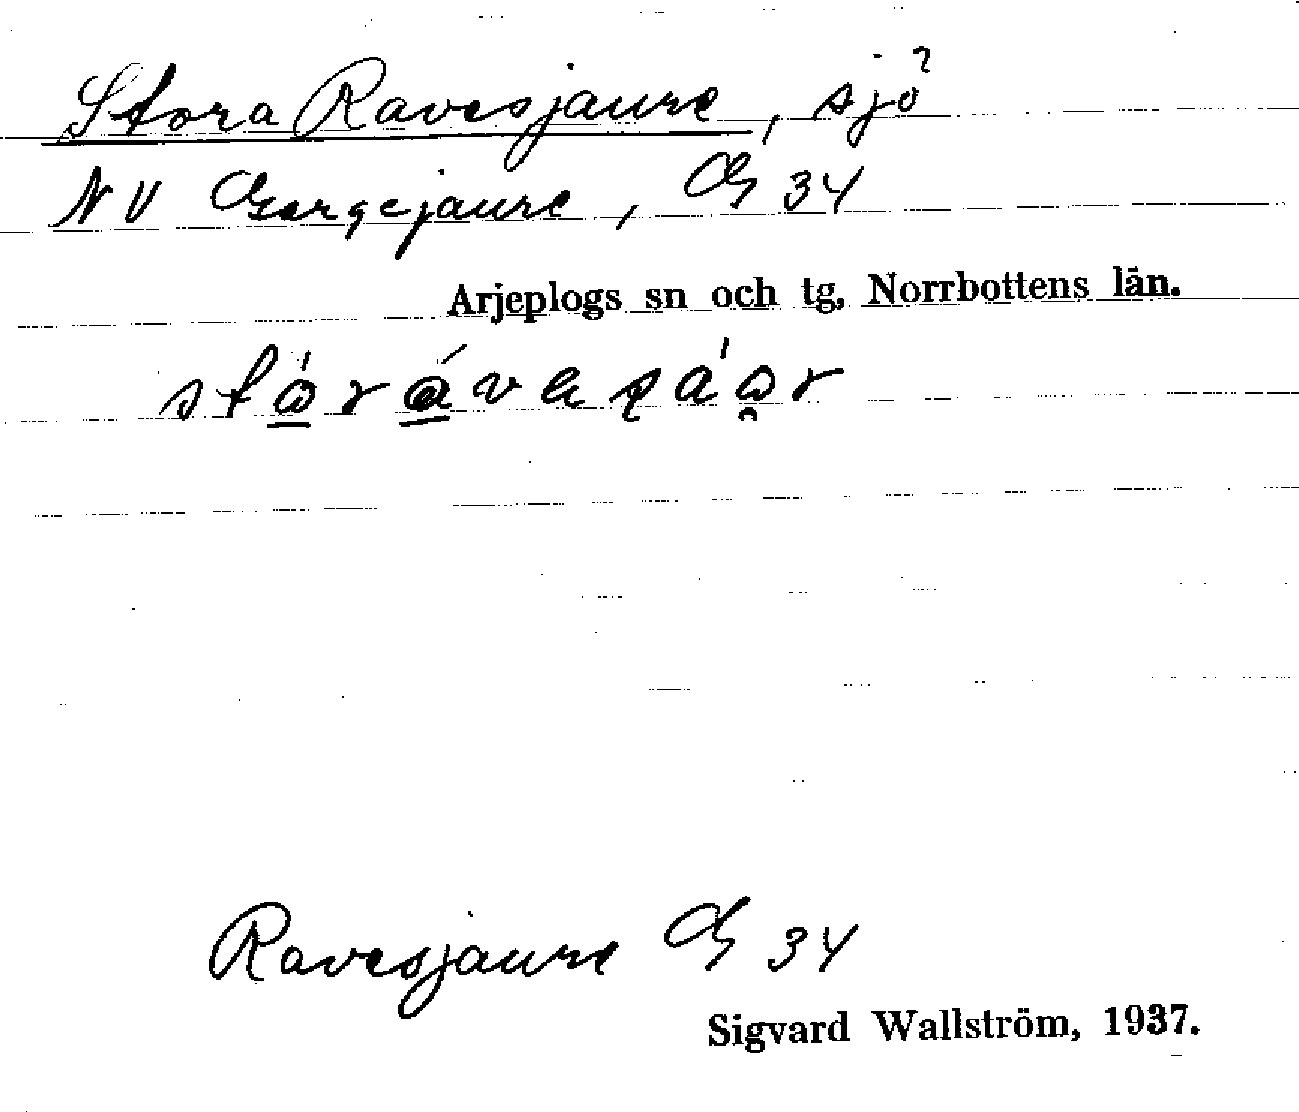 Stora Ravesjaure, sjö
NV Gargejaure, G 34
Arjeplogs sn och tg, Norrbottens län.
Ravesjaure G 34
Sigvard Wallström, 1937.